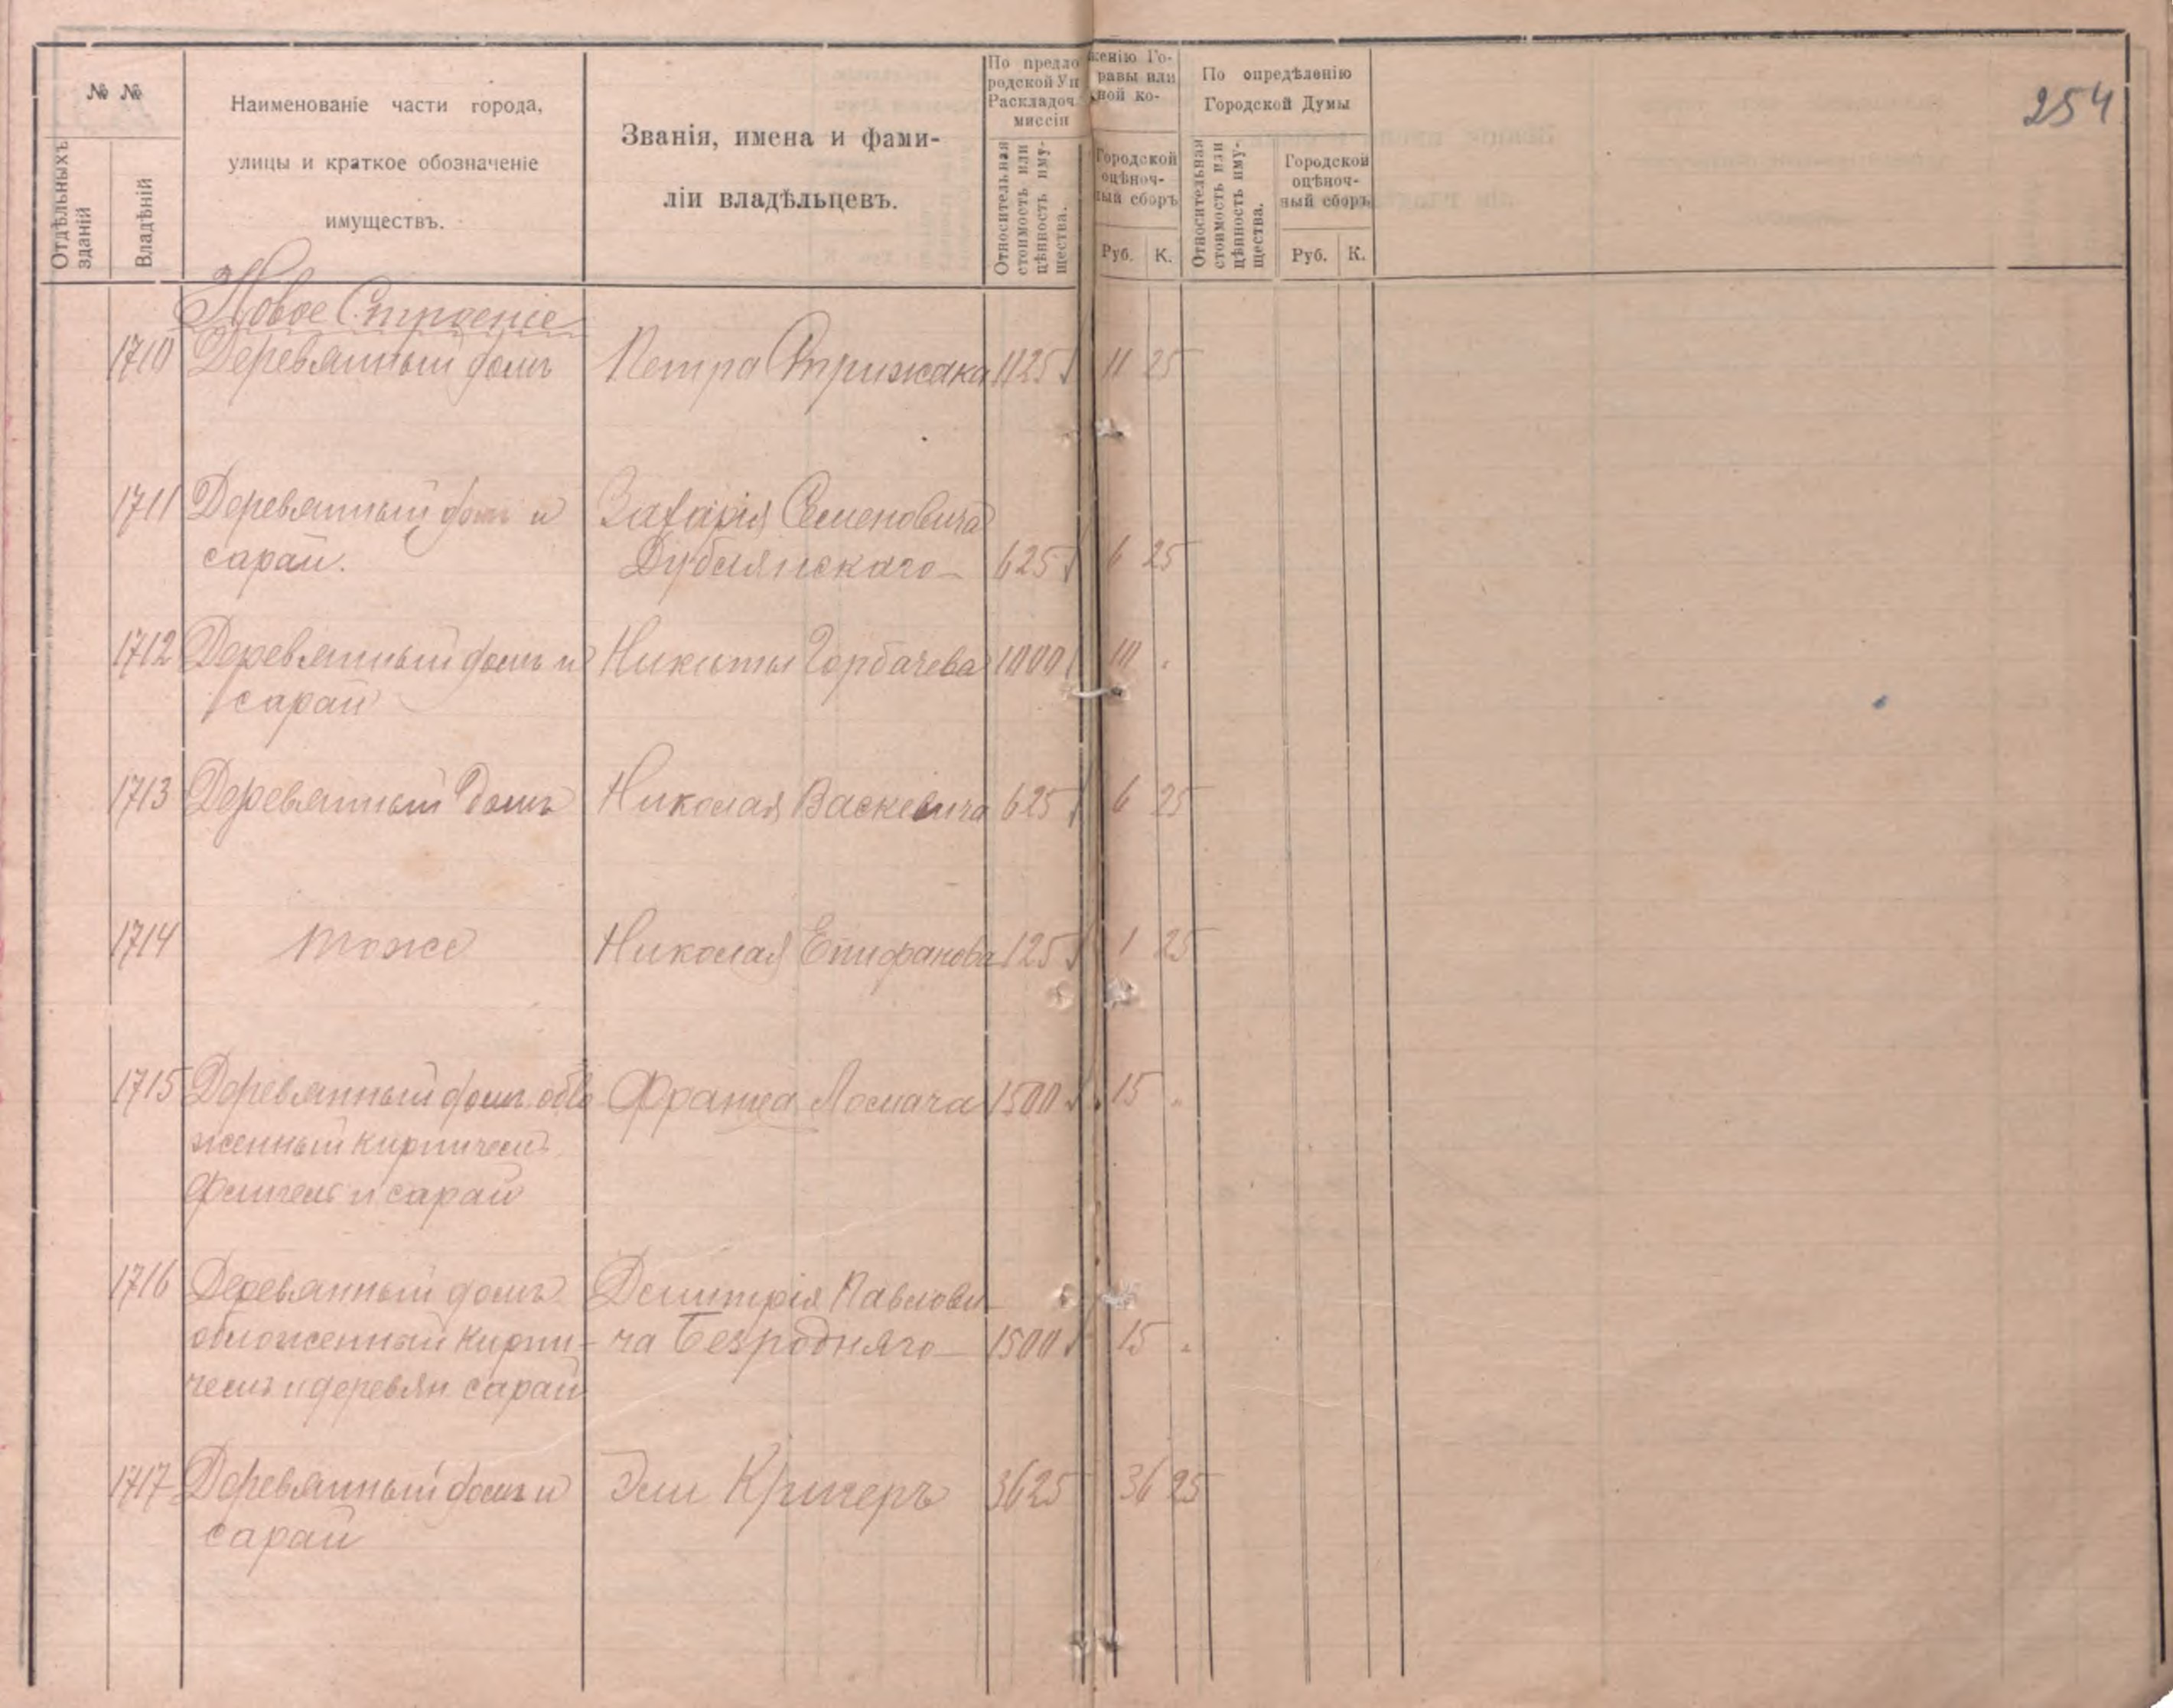 254
№ №
Отдѣльныхъ зданій
Владѣній
Наименованіе части города,
улицы и краткое обозначеніе
имуществъ.
Званія, имена и фами-
ліи владѣльцевъ.
По предложенію Го-
родской Управы или
Раскладочной ко-
миссіи
Относительная стоимость или цѣнность иму-щества.
Городской
оцѣноч-
ный сборъ
Руб. К.
По опредѣленію
Городской Думы
Относительная стоимость или цѣнность иму-щества.
Городской
оцѣноч-
ный сборъ
Руб. К.
Новое Строеніе
1710 Деревянный домъ Петра Стрижака 1125 11 25
1711 Деревянный домъ и Захарія Семеновича
сарай. Дубянскаго 625 6 25
1712 Деревянный домъ и Никиты Горбачева 1000 10 "
сарай
1713 Деревянный домъ Николая Васкевича 625 6 25
1714 тоже Николая Епифанова 125 1 25
1715 Деревянный домъ обло Франца Лосмача 1500 15 "
женный кирпичемъ,
флигель и сарай
1716 Деревянный домъ Дмитрія Павлови-
обложенный кирпи- ча Безродняго 1500 15 "
чемъ и деревян. сарай
1717 Деревянный домъ и Эли Кригеръ 3625 36 25
сарай